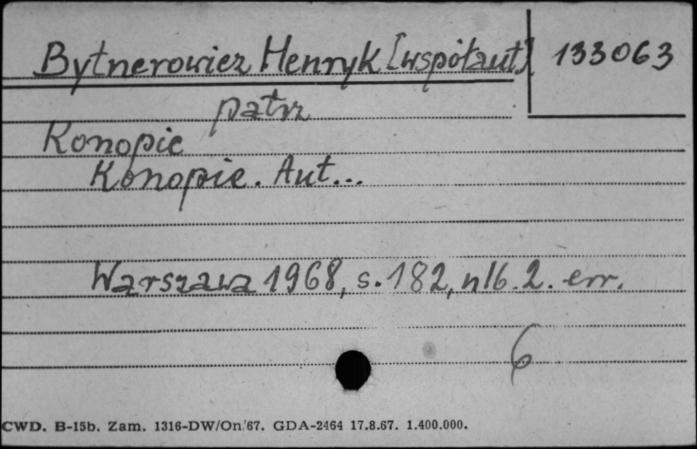 Bytnerowicz Henryk [współaut] 133063
patrz
Konopie
Konopie. Aut...
Warszawa 1968, s. 182, nlb. 2. err.
6
CWD. B-15b. Zam. 1316-DW/On/67. GDA-2464 17.8.67. 1.400.000.